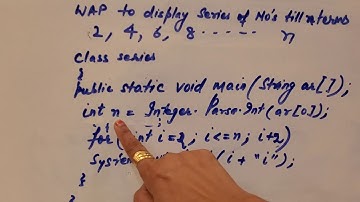 WAP to display series of No's till n terms
2, 4, 6, 8 ------ n
class series
{
public static void main (String ar[]){
int n = Integer. Parse. Int (ar[0]);
for (int i=2; i<=n; i+2)
System (i + "i");
}
}